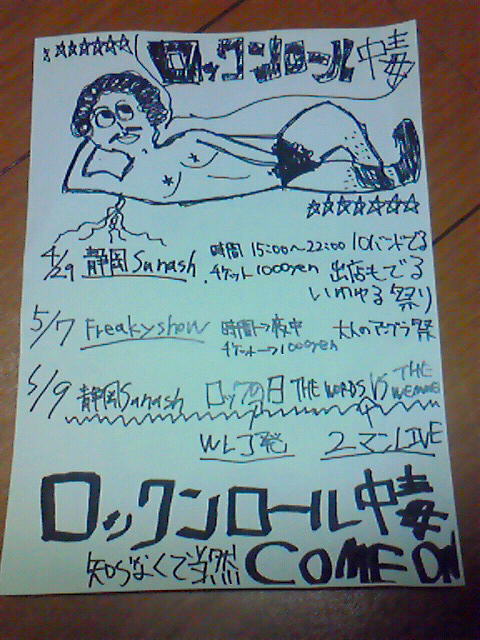 ☆☆☆☆☆☆ ロックンロール中毒
☆☆☆☆☆☆☆
4/29 静岡Sunash 時間 15:00〜22:00 10バンドでる
チケット1000yen 出店もでる
いわゆる祭り
5/7 Freakyshow 時間→夜中 大人のアングラ祭
チケット→1000yen
5/9 静岡Sunash ロックの日 THE WORDS VS THE
2マンLIVE
ロックンロール中毒
知らなくて当然 COME ON